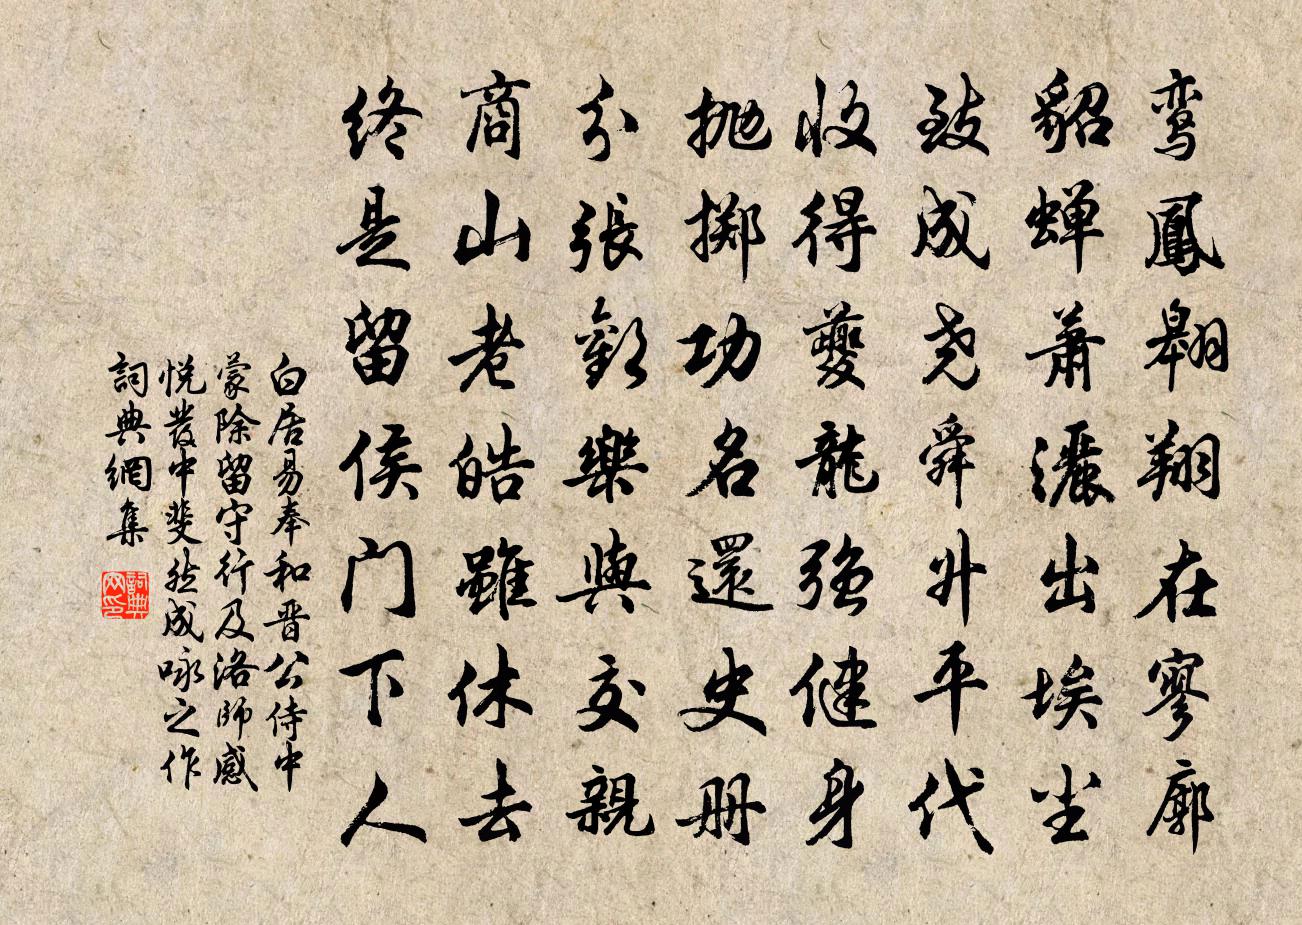 鸾鳳翱翔在寥廓
貂蝉蕭灑出埃尘
致成尧舜升平代
收得夔龍强健身
抛掷功名還史册
分張歡樂與交親
商山老皓雖休去
终是留侯门下人
白居易奉和晋公侍中
蒙除留守行及洛師感
悦發中斐然成咏之作
詞典網集
詞典
网印